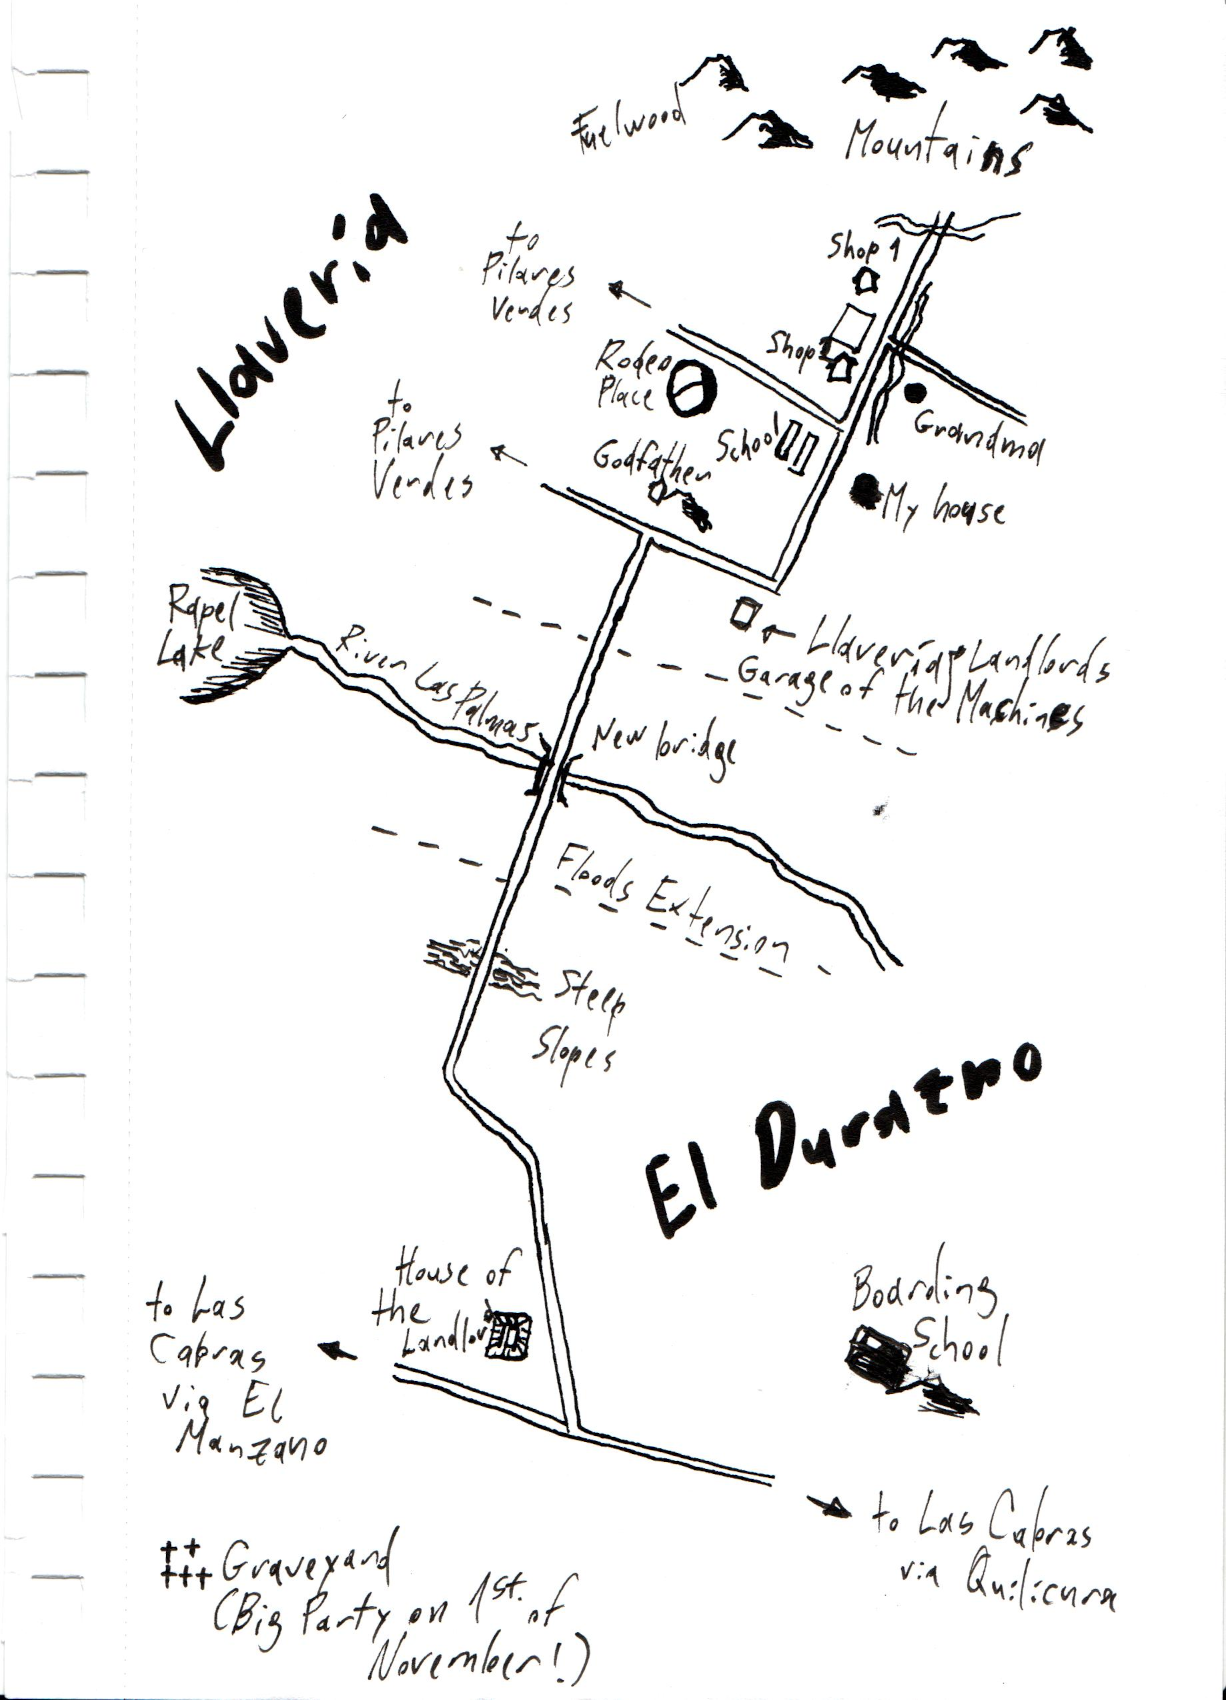 Fuelwood
Mountains
Llavería
to
Pilares
Verdes
Shop 1
Shop 2
Rodeo
Place
School
Grandma
to
Pilares
Verdes
Godfather
My house
Rapel
Lake
River Las Palmas
Llavería Landlords
Garage of the Machines
New bridge
Floods Extension
Steep
Slopes
El Durazno
House of
the
Landlord
Boarding
School
to Las
Cabras
via El
Manzano
to Las Cabras
via Quilicura
Graveyard
(Big Party on 1st. of
November!)